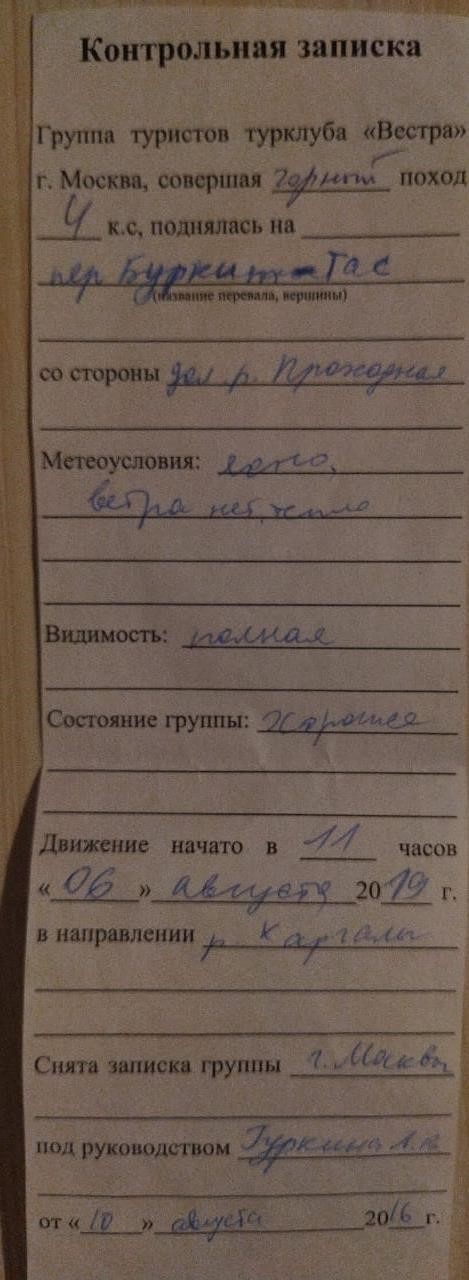 Контрольная записка
Группа туристов турклуба «Вестра»
г. Москва, совершая горный поход
4 к.с, поднялась на
пер Буркит-Тас
(название перевала, вершины)
со стороны дол р. Проходная
Метеоусловия: ясно,
ветра нет, тепло
Видимость: полная
Состояние группы: Хорошее
Движение начато в 11 часов
«06» августа 2019 г.
в направлении р. Каргалы
Снята записка группы г. Москвы
под руководством Гуркина
от «10» августа 2016 г.